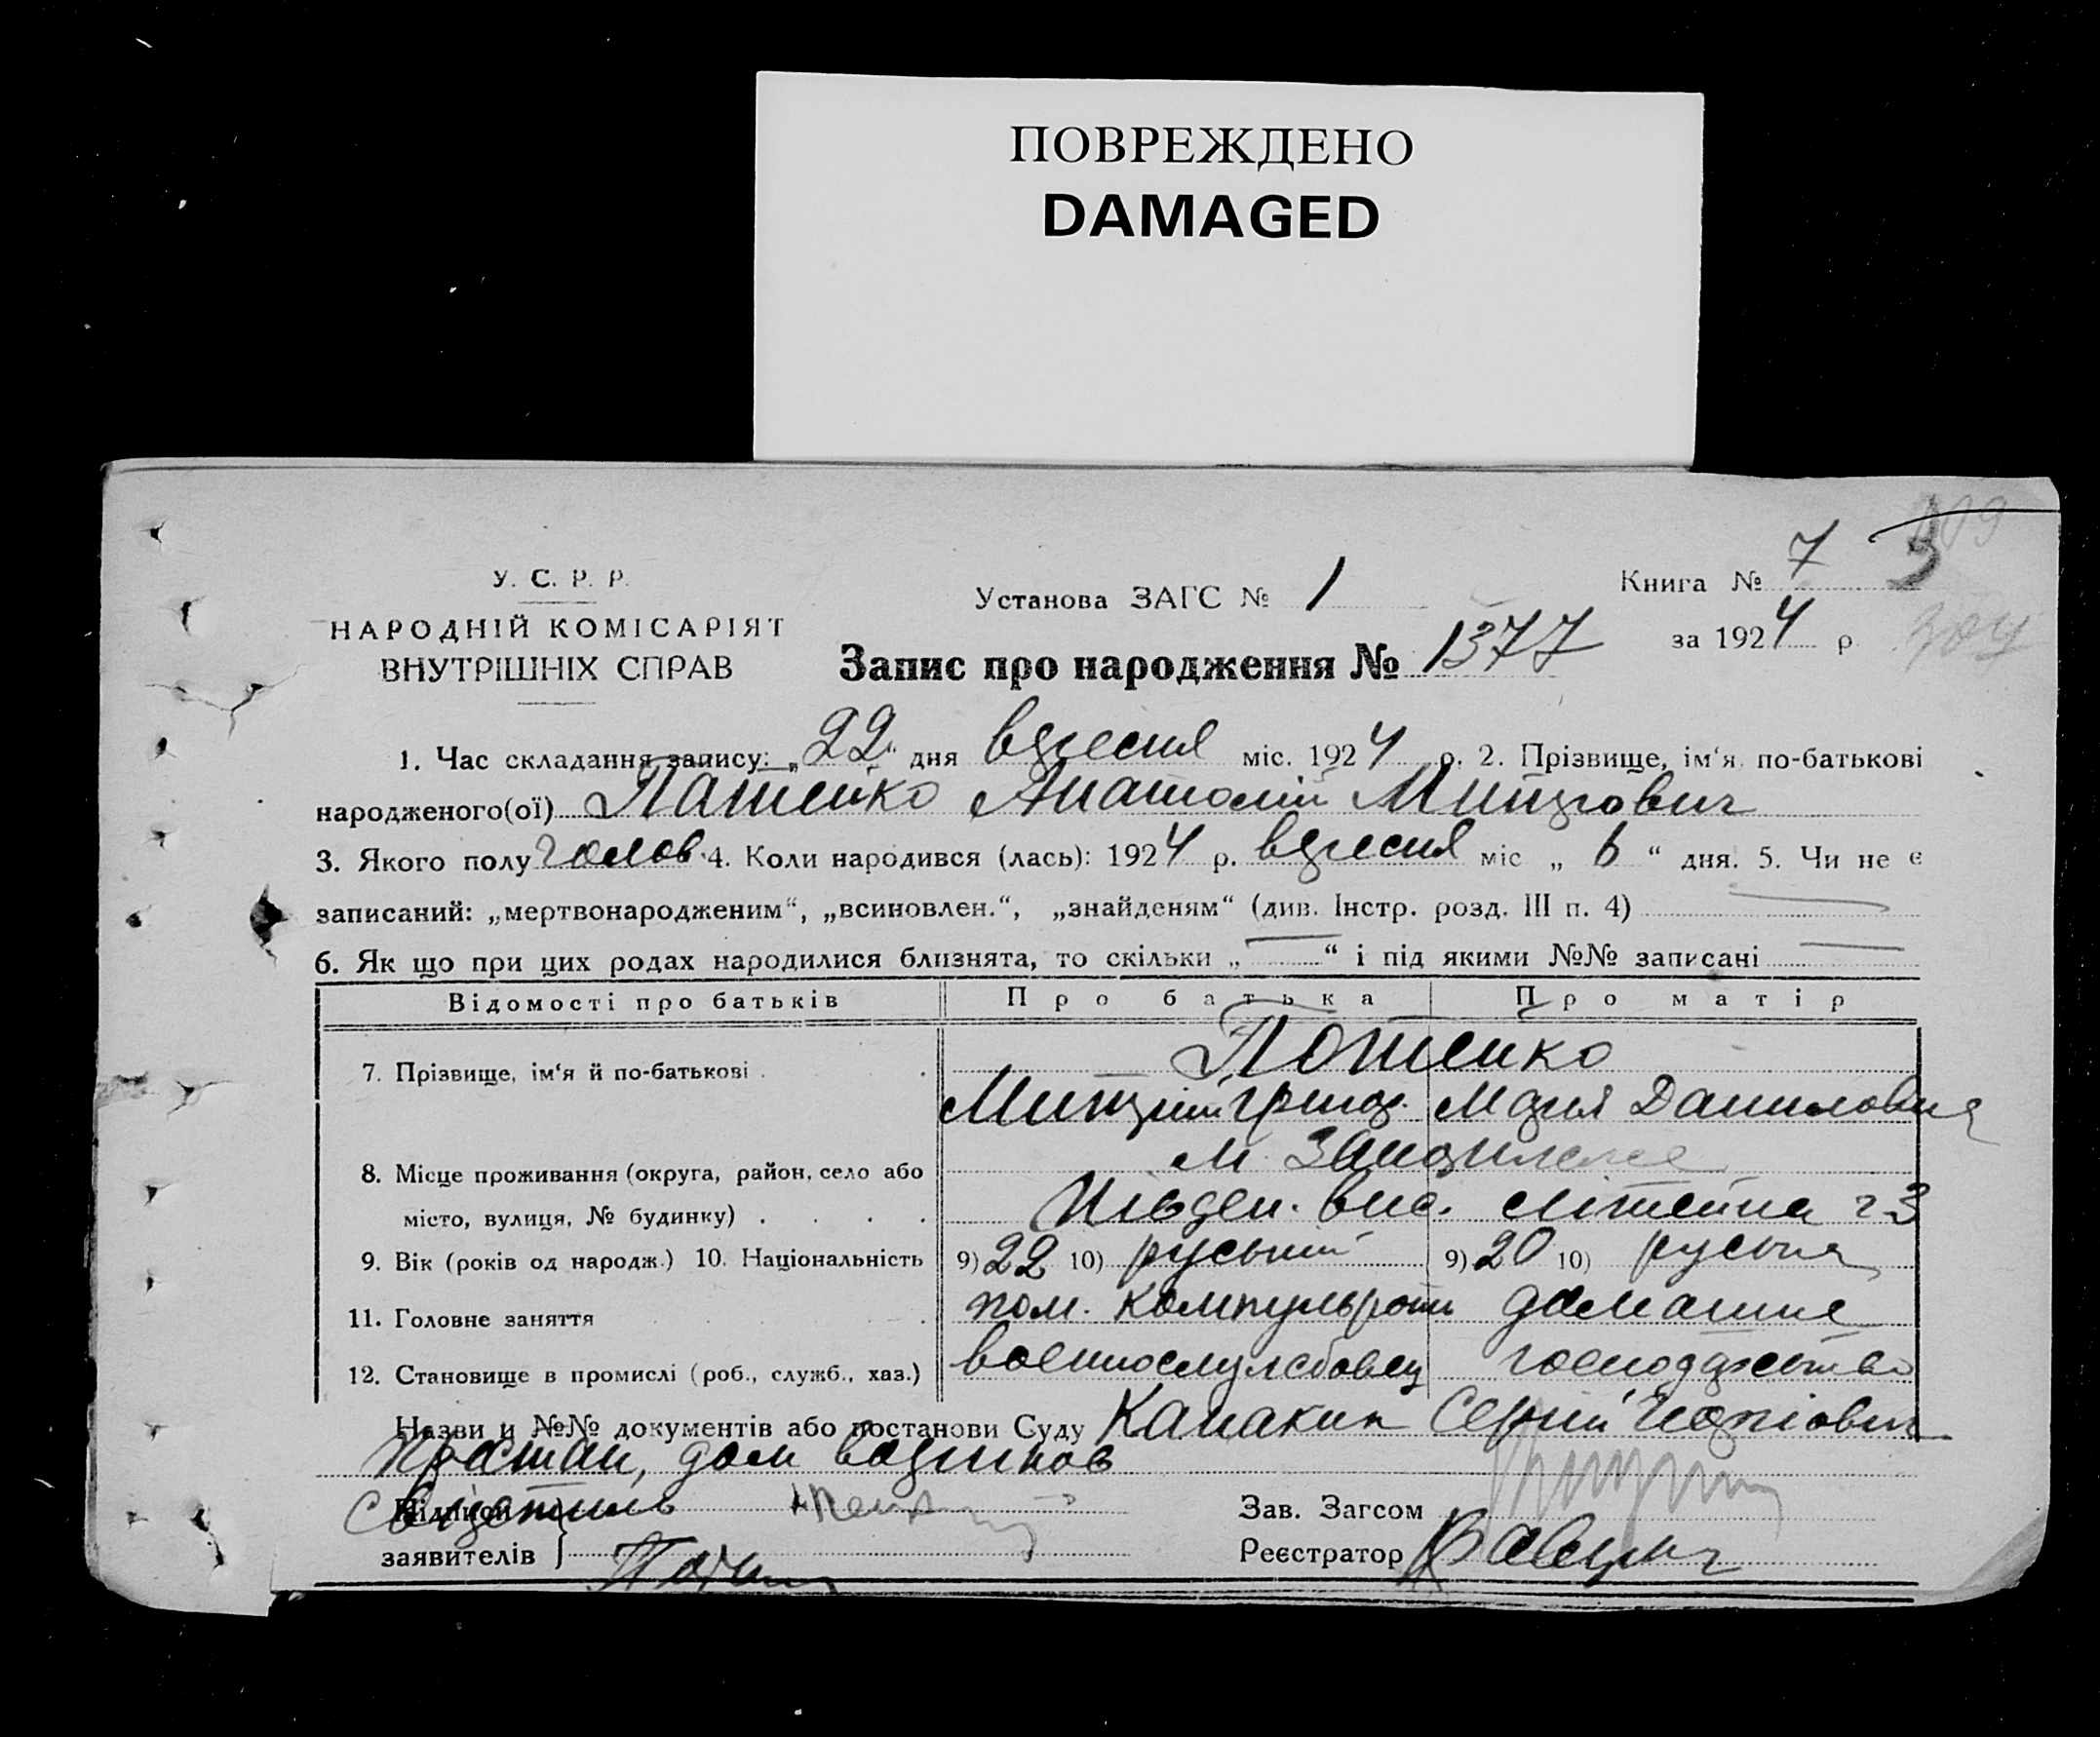 ПОВРЕЖДЕНО
DAMAGED
У. С. Р. Р.
НАРОДНІЙ КОМІСАРІЯТ
ВНУТРІШНІХ СПРАВ
Установа ЗАГС № 1
Книга № 7
Запис про народження № 1377
за 1924 р.
1. Час складання запису: „22“ дня вересня міс. 1924 р. 2. Прізвище, ім‘я по-батькові
народженого(ої) Патенко Анатолій Митрович
3. Якого полу 4. Коли народився (лась): 1924 р. вересня міс „ 6 “ дня. 5. Чи не є
записаний: „мертвонародженим“, „всиновлен.“, „знайденям“ (див. Інстр. розд. III п. 4)
6. Як що при цих родах народилися близнята, то скільки „ “ і під якими №№ записані
Відомості про батьків Про батька Про матір
7. Прізвище, ім‘я й по-батькові Потенко
Марія Даниловна
8. Місце проживання (округа, район, село або м.
місто, вулиця, № будинку) Півден.
9. Вік (років од народж.) 10. Національність 9) 22 10) руський 9) 20 10) руська
11. Головне заняття пом. домашнє
12. Становище в промислі (роб., служб., хаз.) военнослужбовец господарство
Назви й №№ документів або постанови Суду Канакин Сергій
дом
Підписи
заявителів
Зав. Загсом
Реєстратор